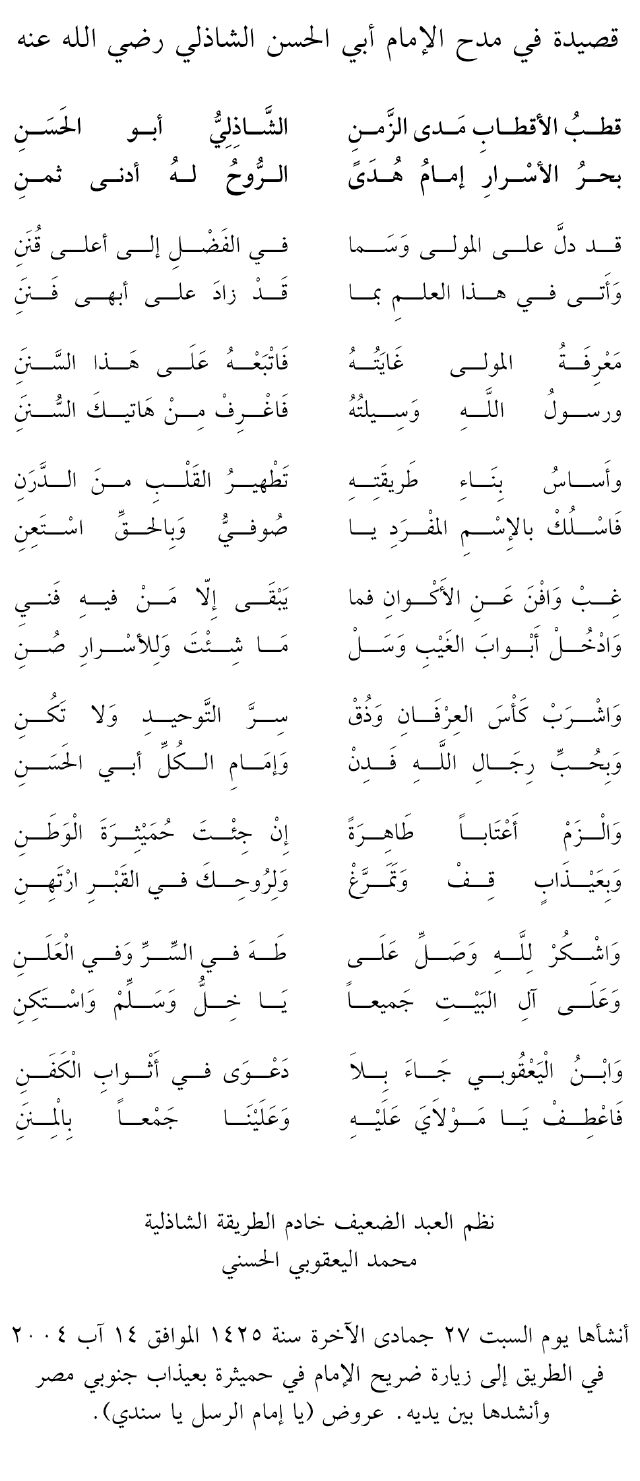 قصيدة في مدح الإمام أبي الحسن الشاذلي رضي الله عنه
قطبُ الأقطابِ مَدى الزَّمنِ الشَّاذِلِيُّ أبو الحَسَنِ
بحرُ الأسْرارِ إمامُ هُدَىً الرُّوحُ لهُ أدنى ثمنِ
قد دلَّ على المولى وَسَما في الفَضْلِ إلى أعلى قُنَنِ
وَأَتى في هذا العلمِ بما قَدْ زادَ على أبهى فَنَنِ
مَعْرِفَةُ المولى غَايَتُهُ فَاتْبَعْهُ عَلَى هَذا السَّنَنِ
ورسولُ اللَّهِ وَسِيلتُهُ فَاغْرِفْ مِنْ هَاتيكَ السُّنَنِ
وأَساسُ بِنَاءِ طَريقَتِهِ تَطْهيرُ القَلْبِ منَ الدَّرَنِ
فَاسْلُكْ بالإسْمِ المفْرَدِ يا صُوفيُّ وَبِالحقِّ اسْتَعِنِ
غِبْ وَافْنَ عَنِ الأَكْوانِ فما يَبْقَى إلّا مَنْ فيهِ فَني
وَادْخُلْ أَبْوابَ الغَيْبِ وَسَلْ مَا شِئْتَ وَلِلأسْرارِ صُنِ
وَاشْرَبْ كَأْسَ العِرْفَانِ وَذُقْ سِرَّ التَّوحيدِ وَلا تَكُنِ
وَبِحُبِّ رِجَالِ اللَّهِ فَدِنْ وَإمَامِ الكُلِّ أبي الحَسَنِ
وَالْزَمْ أَعْتَاباً طَاهِرَةً إنْ جِئْتَ حُمَيْثِرَةَ الْوَطَنِ
وَبِعَيْذَابٍ قِفْ وَتَمَرَّغْ وَلِرُوحِكَ في القَبْرِ ارْتَهِنِ
وَاشْكُرْ لِلَّهِ وَصَلِّ عَلَى طَهَ في السِّرِّ وَفي الْعَلَنِ
وَعَلَى آلِ البَيْتِ جَميعاً يَا خِلُّ وَسَلِّمْ وَاسْتَكِنِ
وَابْنُ الْيَعْقُوبي جَاءَ بِلاَ دَعْوَى في أَثْوابِ الْكَفَنِ
فَاعْطِفْ يَا مَوْلاَيَ عَلَيْهِ وَعَلَيْنَا جَمْعاً بِالْمِنَنِ
نظم العبد الضعيف خادم الطريقة الشاذلية
محمد اليعقوبي الحسني
أنشأها يوم السبت ٢٧ جمادى الآخرة سنة ١٤٢٥ الموافق ١٤ آب ٢٠٠٤
في الطريق إلى زيارة ضريح الإمام في حميثرة بعيذاب جنوبي مصر
وأنشدها بين يديه. عروض (يا إمام الرسل يا سندي).